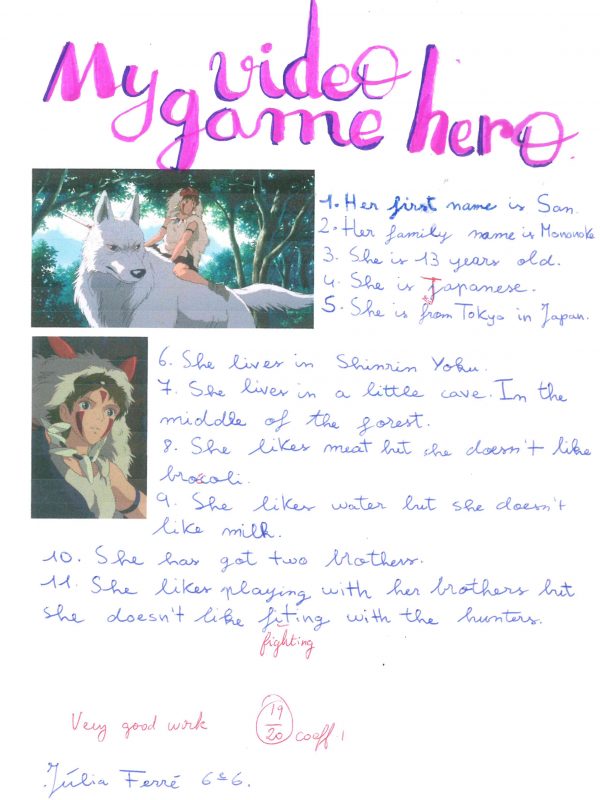 My video
game hero.
1. Her first name is San.
2. Her family name is Mononoke
3. She is 13 years old.
4. She is Japanese.
5. She is from Tokyo in Japan.
6. She lives in Shinrin Yoku.
7. She lives in a little cave. In the
middle of the forest.
8. She likes meat but she doesn't like
brocoli.
9. She likes water but she doesn't
like milk.
10. She has got two brothers.
11. She likes playing with her brothers but
she doesn't like fiting with the hunters.
fighting
Very good work
19
20 coeff 1
Júlia Ferré 6e6.